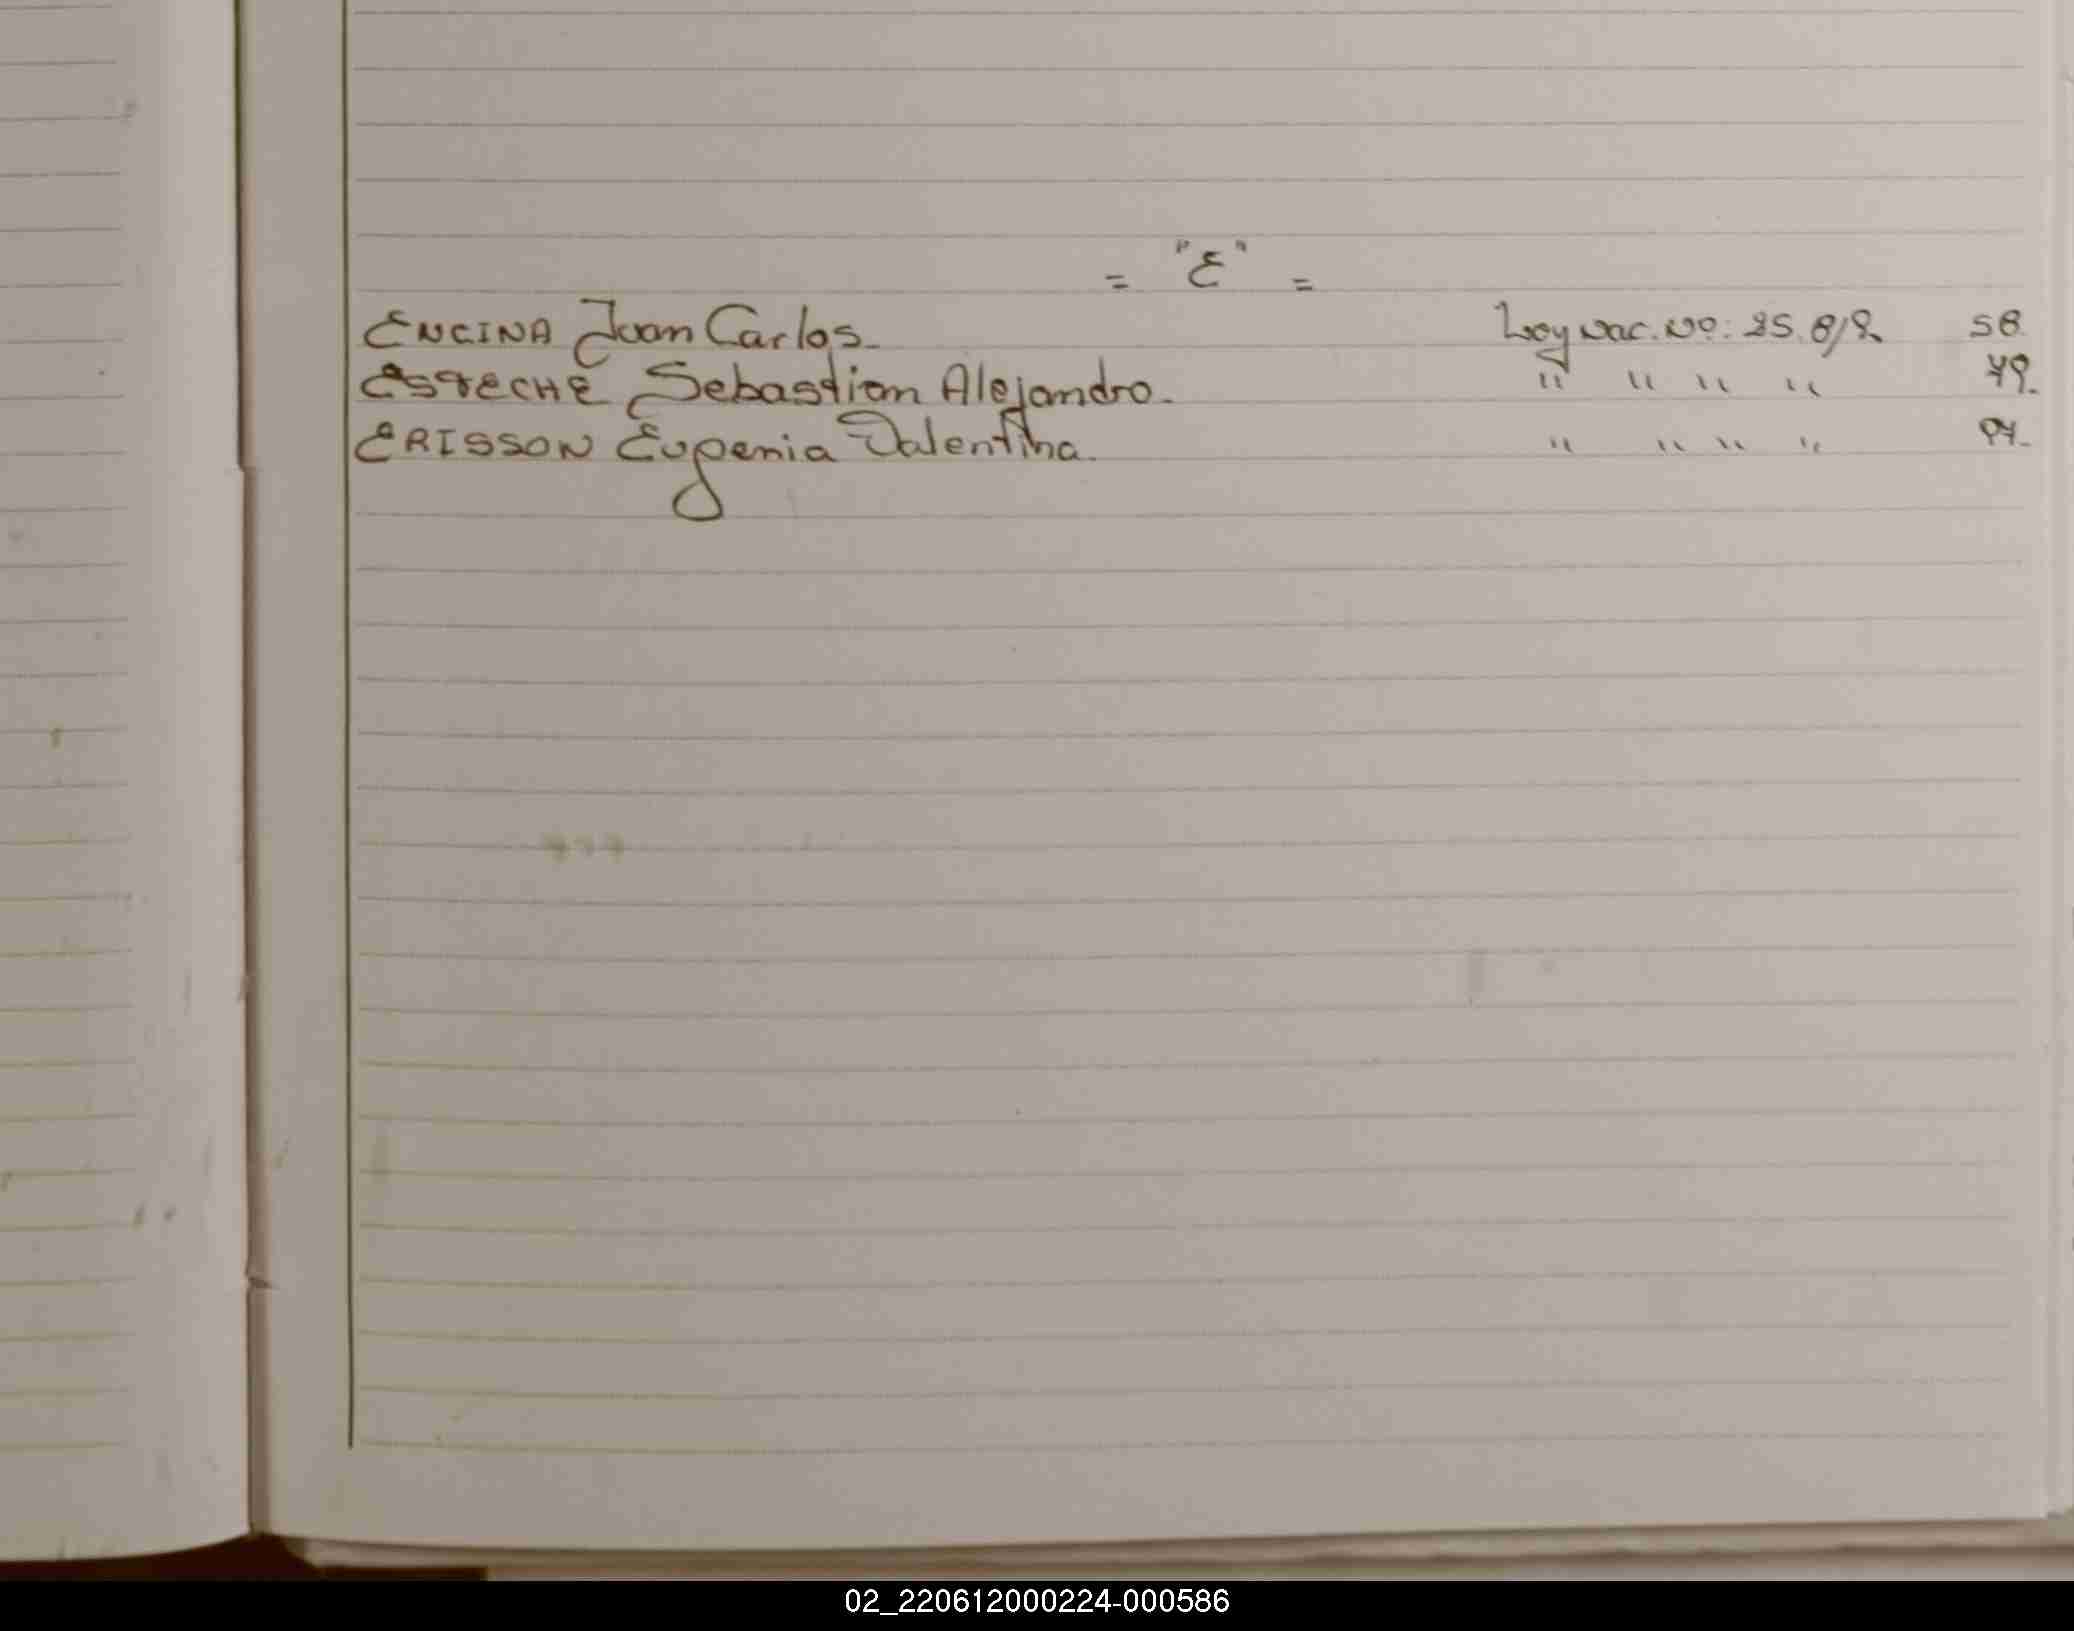 = "E" =
ENCINA Juan Carlos. Ley Nac. Nº: 25.819. 58.
ESTECHE Sebastian Alejandro. " " " " 79.
ERISSON Eugenia Valentina. " " " " 97.
02_220612000224-000586